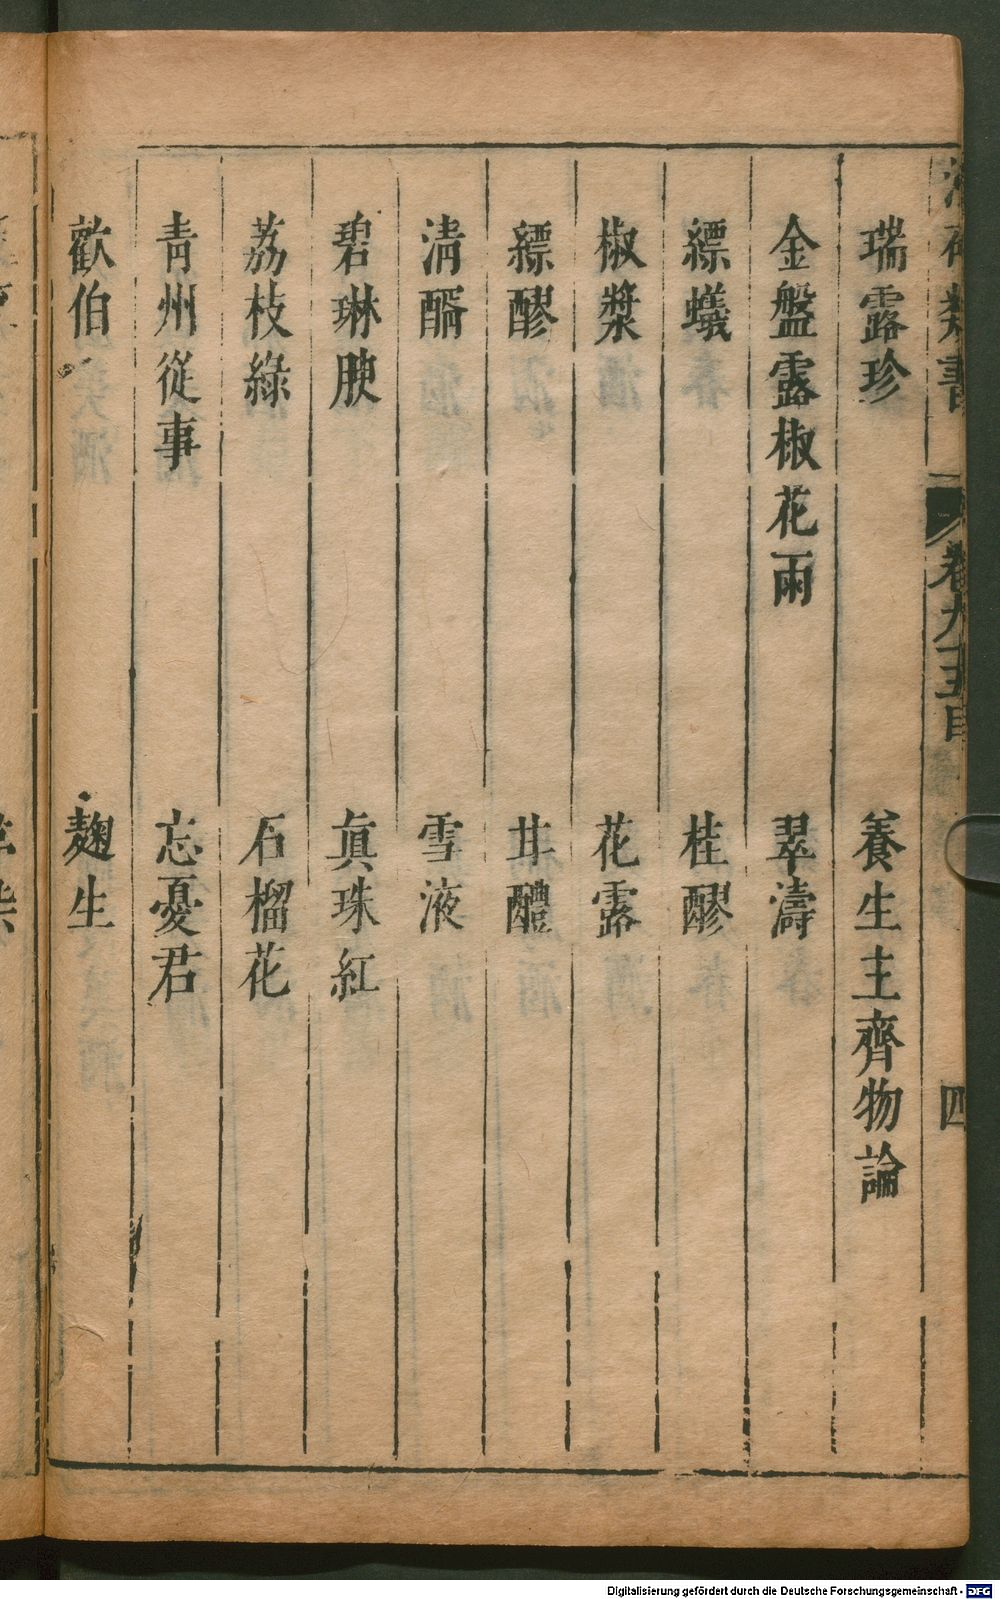 卷九十五目
四
瑞露珍　養生主齊物論
金盤露椒花雨　翠濤
縹蟻　桂醪
椒漿　花露
縹醪　甘醴
清醑　雪液
碧琳腴　真珠紅
荔枝綠　石榴花
青州從事　忘憂君
歡伯　麴生
Digitalisierung gefördert durch die Deutsche Forschungsgemeinschaft - DFG